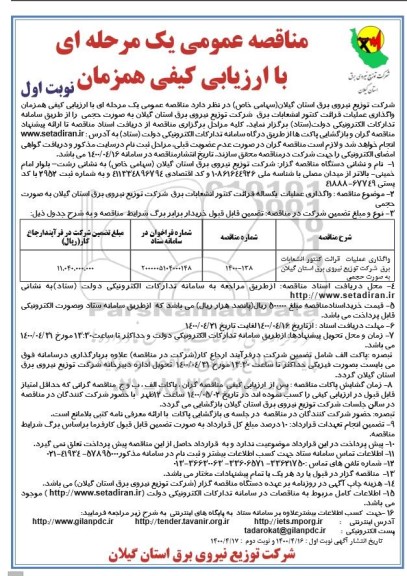 مناقصه عمومی یک مرحله ای
با ارزیابی کیفی همزمان
نوبت اول
شرکت توزیع نیروی برق
استان گیلان
شرکت توزیع نیروی برق استان گیلان(سهامی خاص) در نظر دارد مناقصه عمومی یک مرحله ای با ارزیابی کیفی همزمان
واگذاری عملیات قرائت کنتور انشعابات برق شرکت توزیع نیروی برق استان گیلان به صورت حجمی را از طریق سامانه
تدارکات الکترونیکی دولت(ستاد) برگزار نماید. کلیه مراحل برگزاری مناقصه از دریافت اسناد مناقصه تا ارائه پیشنهاد
مناقصه گران و بازگشایی پاکت ها از طریق درگاه سامانه تدارکات الکترونیکی دولت (ستاد) به آدرس : www.setadiran.ir
انجام خواهد شد و لازم است مناقصه گران در صورت عدم عضویت قبلی، مراحل ثبت نام در سایت مذکور و دریافت گواهی
امضای الکترونیکی را جهت شرکت در مناقصه محقق سازند. تاریخ انتشار مناقصه در سامانه ۱۴۰۰/۰۴/۱۶ می باشد.
۱- نام و نشانی دستگاه مناقصه گزار: شرکت توزیع نیروی برق استان گیلان (سهامی خاص) به نشانی رشت- بلوار امام
خمینی- بالاتر از میدان مصلی با شناسه ملی ۱۰۸۶۱۶۴۴۹۲۶ و کد اقتصادی ۴۱۱۳۳۴۸۹۶۷۹۴ و به شماره ثبت ۲۹۵۲ با کد
پستی ۶۷۷۴۹-۴۱۸۸۸
۲-موضوع مناقصه : واگذاری عملیات یکساله قرائت کنتور انشعابات برق شرکت توزیع نیروی برق استان گیلان به صورت
حجمی
۳- نوع و مبلغ تضمین شرکت در مناقصه: تضمین قابل قبول خریدار برابر برگ شرایط مناقصه و به شرح جدول ذیل:
شرح مناقصه شماره مناقصه شماره فراخوان در سامانه ستاد مبلغ تضمین شرکت در فرآیند ارجاع کار(ریال)
واگذاری عملیات قرائت کنتور انشعابات برق شرکت توزیع نیروی برق استان گیلان به صورت حجمی ۱۴۰۰-۱۳۸ ۲۰۰۰۰۰۵۱۰۴۰۰۰۱۴۸ ۱۱,۰۴۰,۰۰۰,۰۰۰
۴- محل دریافت اسناد مناقصه: ازطریق مراجعه به سامانه تدارکات الکترونیکی دولت (ستاد)به نشانی
http://www.setadiran.ir
۵- قیمت خرید اسناد مناقصه مبلغ ۵۰۰۰۰۰ ریال(پانصد هزار ریال) می باشد که ازطریق سامانه ستاد وبصورت الکترونیکی
قابل پرداخت می باشد.
۶- مهلت دریافت اسناد : ازتاریخ ۱۴۰۰/۰۴/۱۶ لغایت تاریخ ۱۴۰۰/۰۴/۲۱
۷- زمان و محل تحویل پیشنهادها: ازطریق سامانه تدارکات الکترونیکی دولت و حداکثر تا ساعت ۱۴:۳۰ مورخ ۱۴۰۰/۰۴/۳۱ می
باشد.
تبصره :پاکت الف شامل تضمین شرکت درفرآیند ارجاع کار(شرکت در مناقصه) علاوه بربارگذاری درسامانه فوق
می بایست بصورت فیزیکی حداکثر تا ساعت ۱۴:۳۰ مورخ ۱۴۰۰/۰۴/۳۱ تحویل اداره دبیرخانه شرکت توزیع نیروی برق
استان گیلان گردد.
۸- زمان گشایش پاکات مناقصه : پس از ارزیابی کیفی مناقصه گران ، پاکات الف ، ب و ج مناقصه گرانی که حداقل امتیاز
قابل قبول در ارزیابی کیفی را کسب نموده اند در تاریخ ۱۴۰۰/۰۵/۰۲ ساعت ۱۲ظهر با حضور شرکت کنندگان در مناقصه
در سالن جلسات شرکت توزیع نیروی برق استان گیلان بازگشایی می گردد.
تبصره: حضور شرکت کنندگان در مناقصه در جلسه ی بازگشایی پاکات با ارائه معرفی نامه کتبی بلامانع است.
۹- تضمین انجام تعهدات قرارداد: ۱۰درصد مبلغ کل قرارداد به صورت تضمین قابل قبول کارفرما براساس برگ شرایط
مناقصه.
۱۰- پیش پرداخت در این قرارداد موضوعیت ندارد و به قرارداد حاصل از این مناقصه پیش پرداخت تعلق نمی گیرد.
۱۱- اطلاعات تماس سامانه ستاد جهت کسب اطلاعات بیشتر و ثبت نام در سامانه مذکور:
۱۳- مناقصه گزار در قبول یا رد هر یک یا تمام پیشنهادات مختار می باشد.
۱۴- هزینه چاپ آگهی در روزنامه بر عهده دستگاه مناقصه گزار (شرکت توزیع نیروی برق استان گیلان) می باشد.
۱۵- اطلاعات کامل مربوط به مناقصات در سامانه تدارکات الکترونیکی دولت (http://www.setadiran.ir) موجود
می باشد.
۱۶-جهت کسب اطلاعات بیشتر علاوه بر سامانه ستاد به پایگاه های اینترنتی به شرح زیر مراجعه فرمایید:
آدرس اینترنتی : http://iets.mporg.ir http://tender.tavanir.org.ir http://www.gilanpdc.ir
پست الکترونیکی : tadarokat@gilanpdc.ir
تاریخ انتشار آگهی نوبت اول : ۱۴۰۰/۴/۱۶ و نوبت دوم : ۱۴۰۰/۴/۱۷
شرکت توزیع نیروی برق استان گیلان